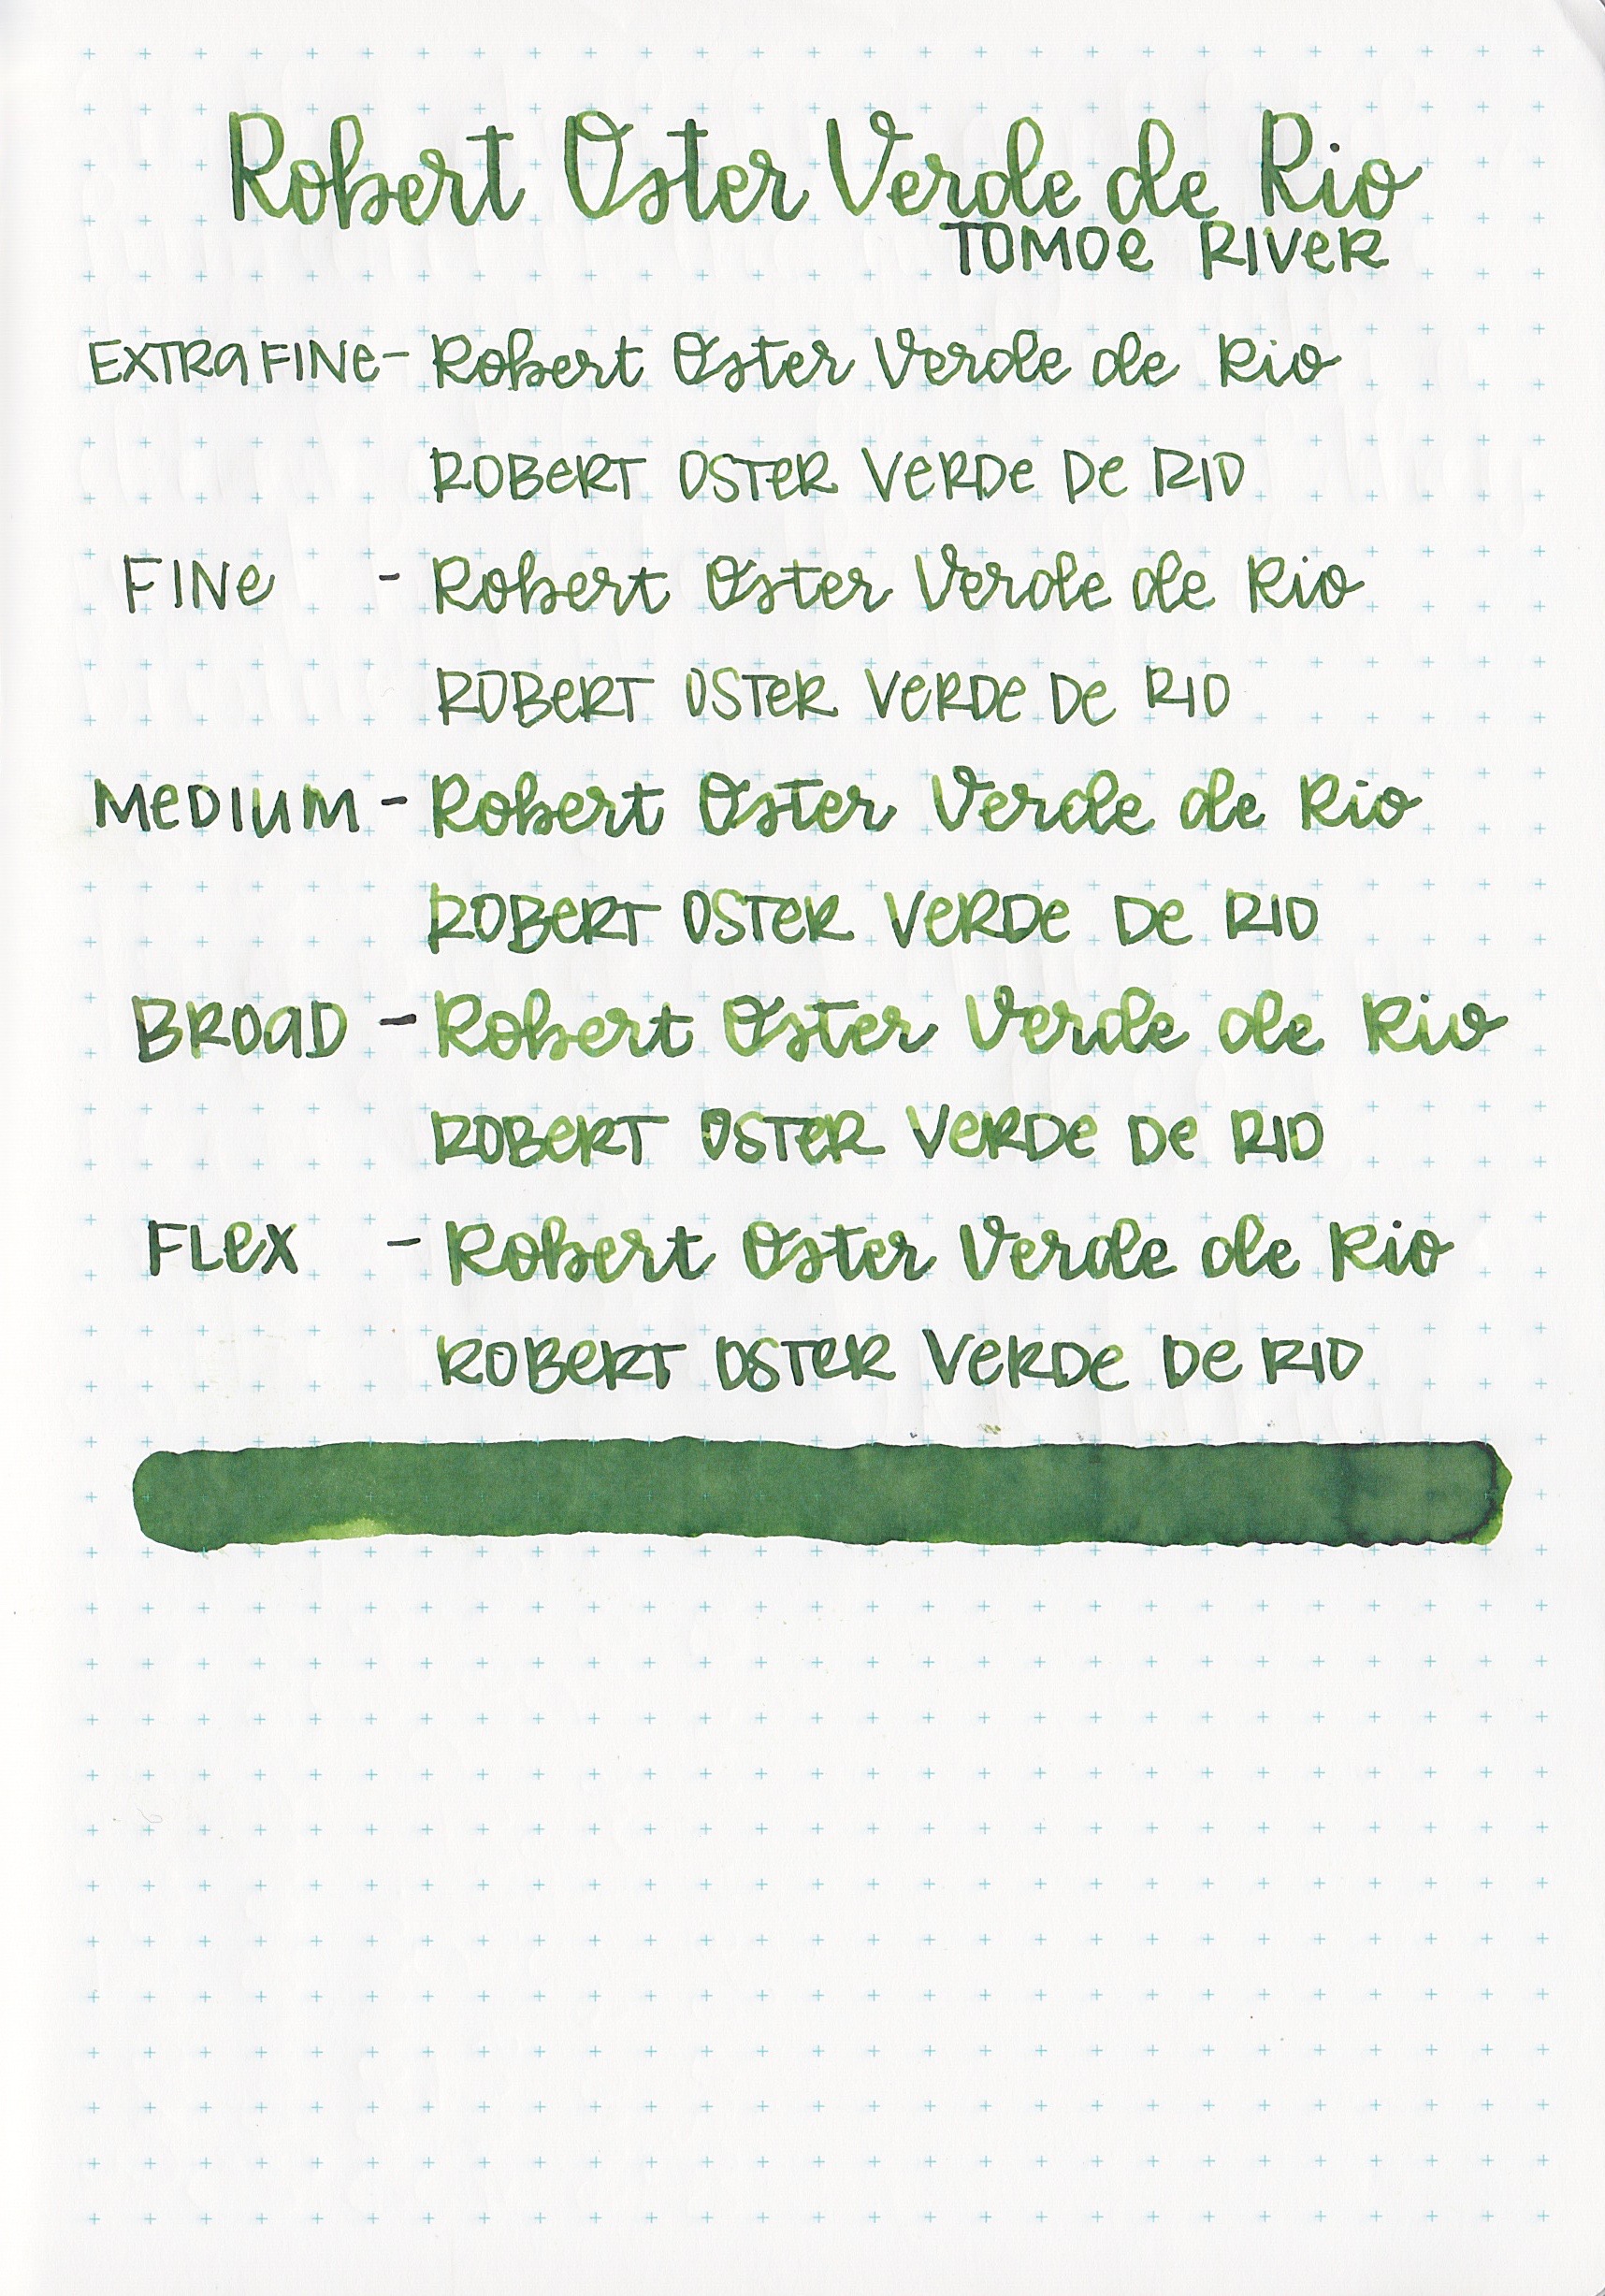 Robert Oster Verde de Rio
TOMOe RIVeR
EXTRa FINe - Robert Oster Verde de Rio
ROBeRT OSTeR VeRDe De RIO
FINe - Robert Oster Verde de Rio
ROBeRT OSTeR VeRDe De RIO
MeDIUM - Robert Oster Verde de Rio
ROBeRT OSTeR VeRDe De RIO
BROaD - Robert Oster Verde de Rio
ROBeRT OSTeR VeRDe De RIO
FLex - Robert Oster Verde de Rio
ROBeRT OSTeR VeRDe De RIO